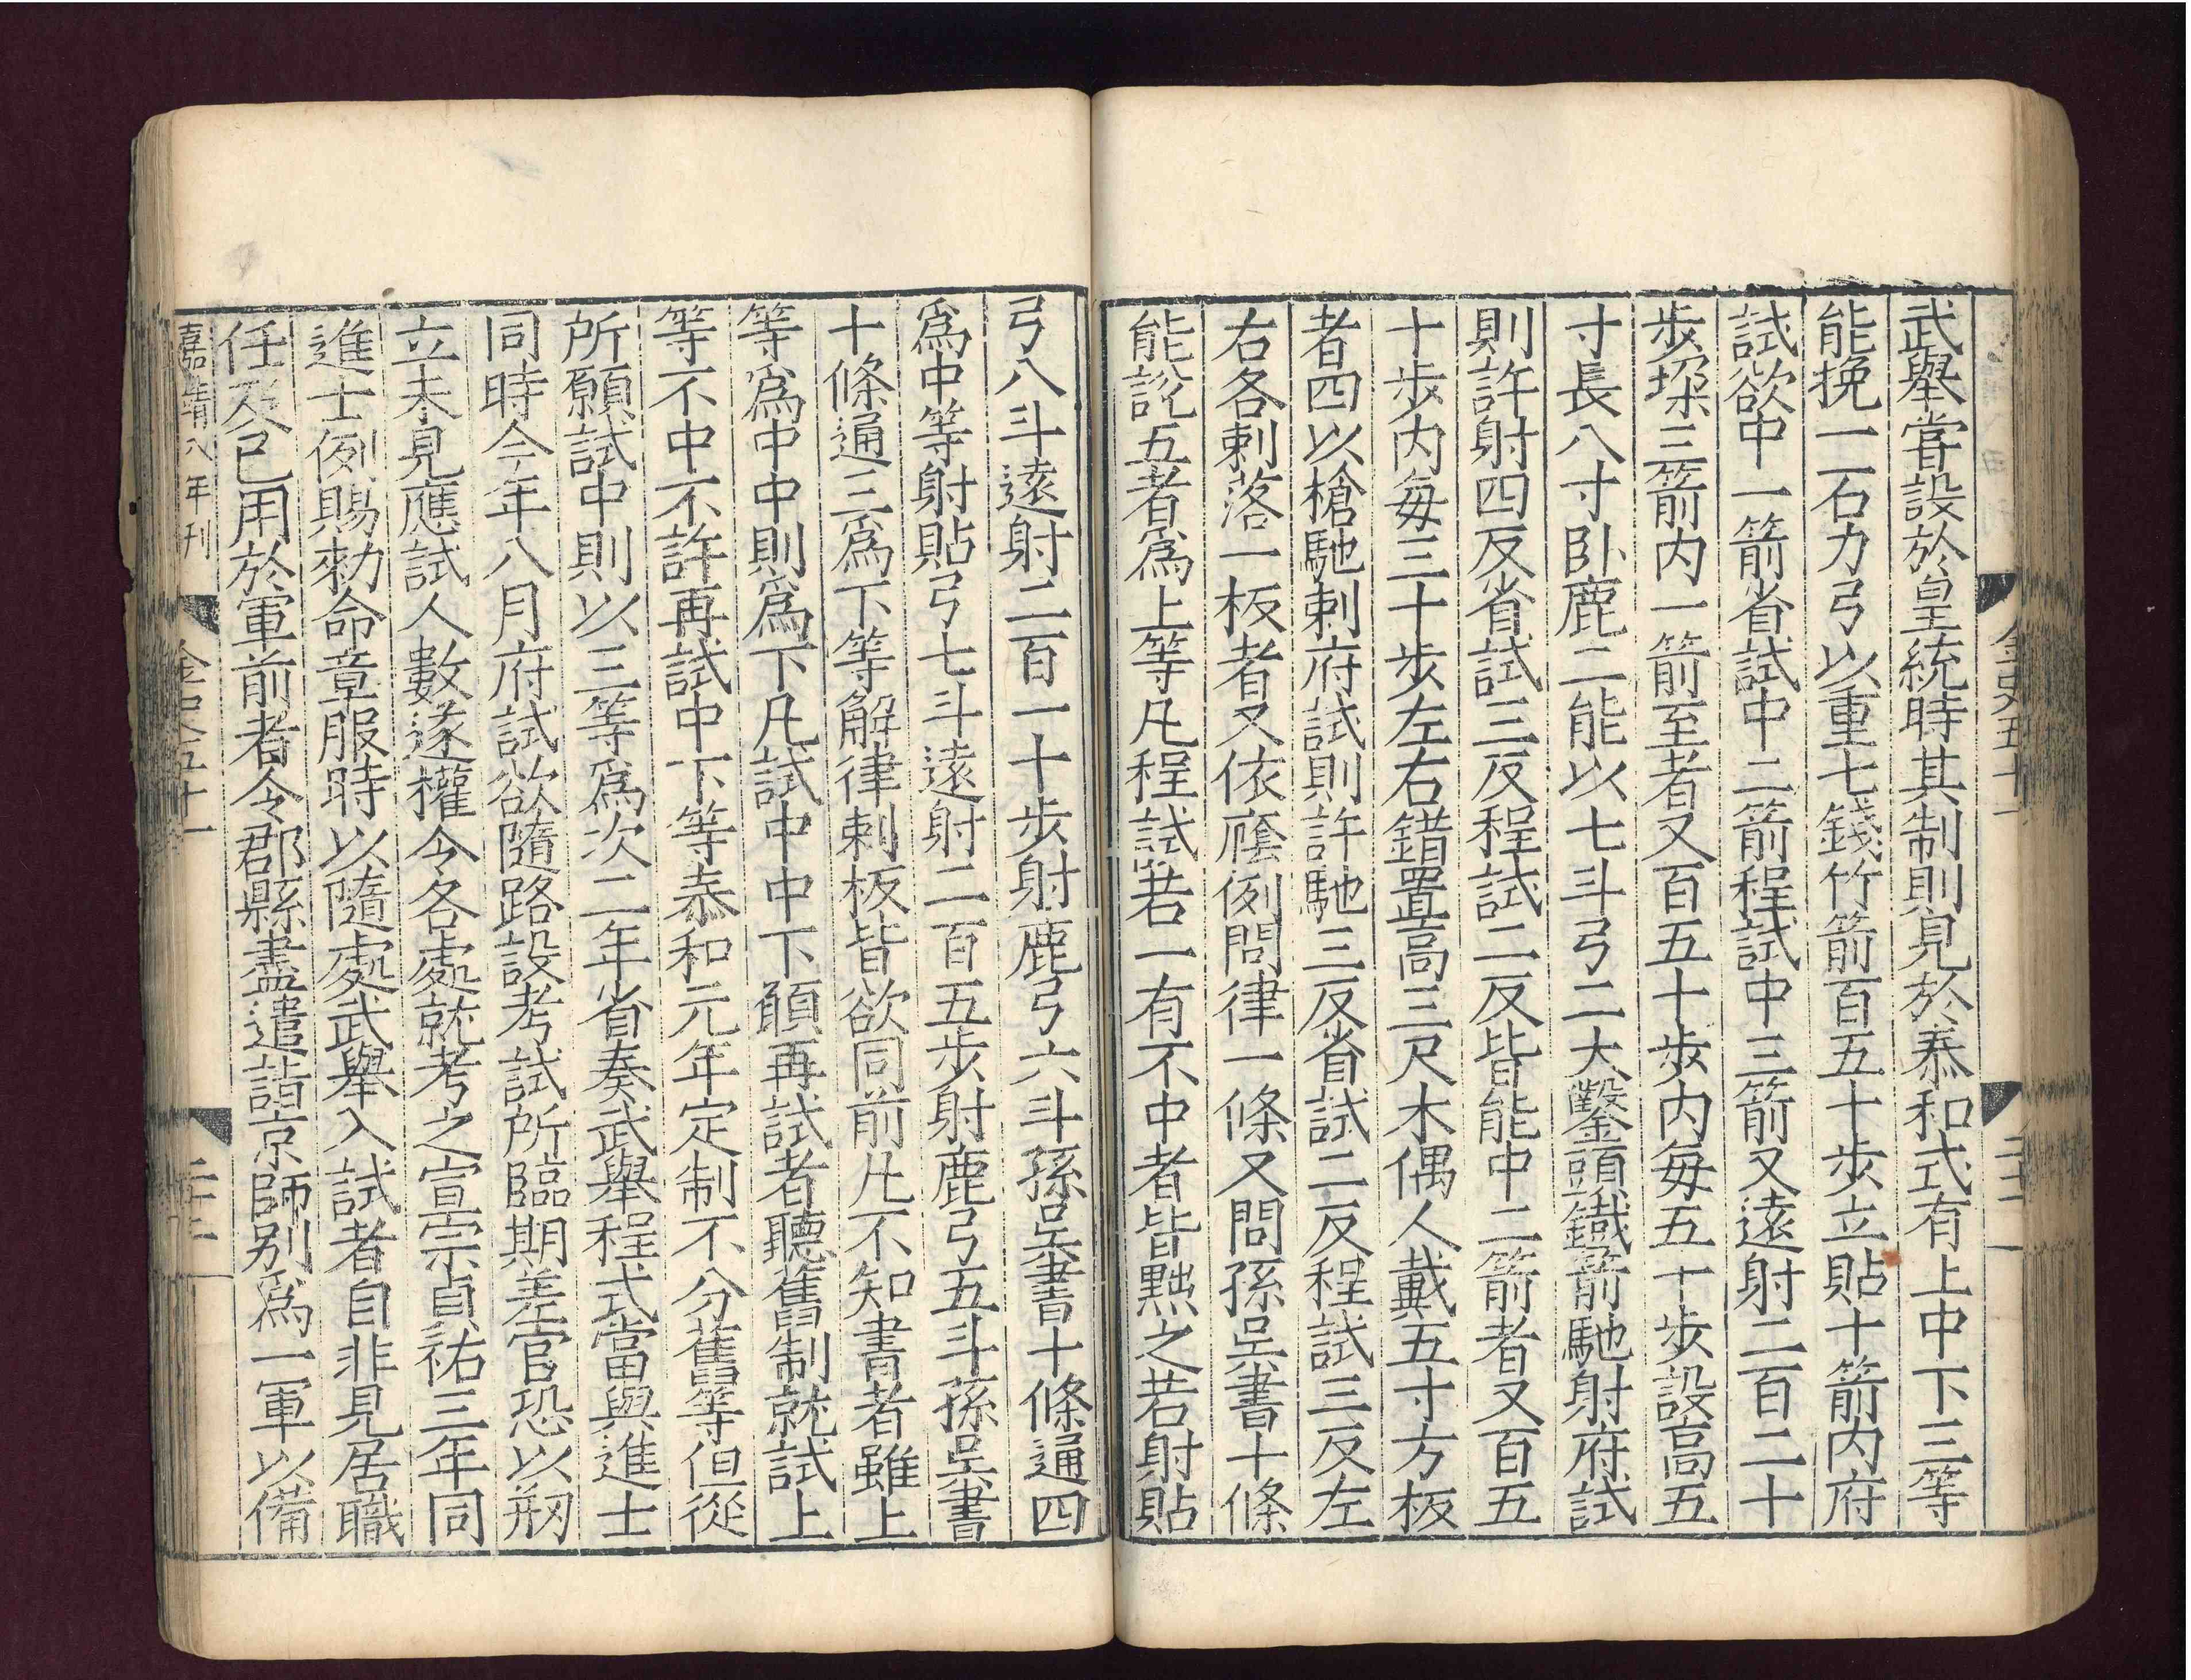 武舉嘗設於皇統時其制則見於泰和式有上中下三等
能挽一石力弓以重七錢竹箭百五十步立貼十箭內府
試欲中一箭省試中二箭程試中三箭又遠射二百二十
步垜三箭內一箭至者又百五十步內每五十步設高五
寸長八寸卧鹿二能以七斗弓二大鑿頭鐵箭馳射府試
則許射四反省試三反程試二反皆能中二箭者又百五
十步內每三十步左右錯置高三尺木偶人戴五寸方板
者四以槍馳刺府試則許馳三反省試二反程試三反左
右各刺落一板者又依廕例問律一條又問孫吳書十條
能說五者爲上等凡程試若一有不中者皆黜之若射貼
弓八斗遠射二百一十步射鹿弓六斗孫吳書十條通四
爲中等射貼弓七斗遠射二百五步射鹿弓五斗孫吳書
十條通三爲下等解律刺板皆欲同前凡不知書者雖上
等爲中中則爲下凡試中中下願再試者聽舊制就試上
等不中不許再試中下等泰和元年定制不分舊等但從
所願試中則以三等爲次二年省奏武舉程式當與進士
同時今年八月府試欲隨路設考試所臨期差官恐以剏
立未見應試人數遂權令各處就考之宣宗貞祐三年同
進士例賜勑命章服時以隨處武舉入試者自非見居職
任及已用於軍前者令郡縣盡遣詣京師别爲一軍以備
嘉靖八年刊
金史五十一
二十二
金史五十一